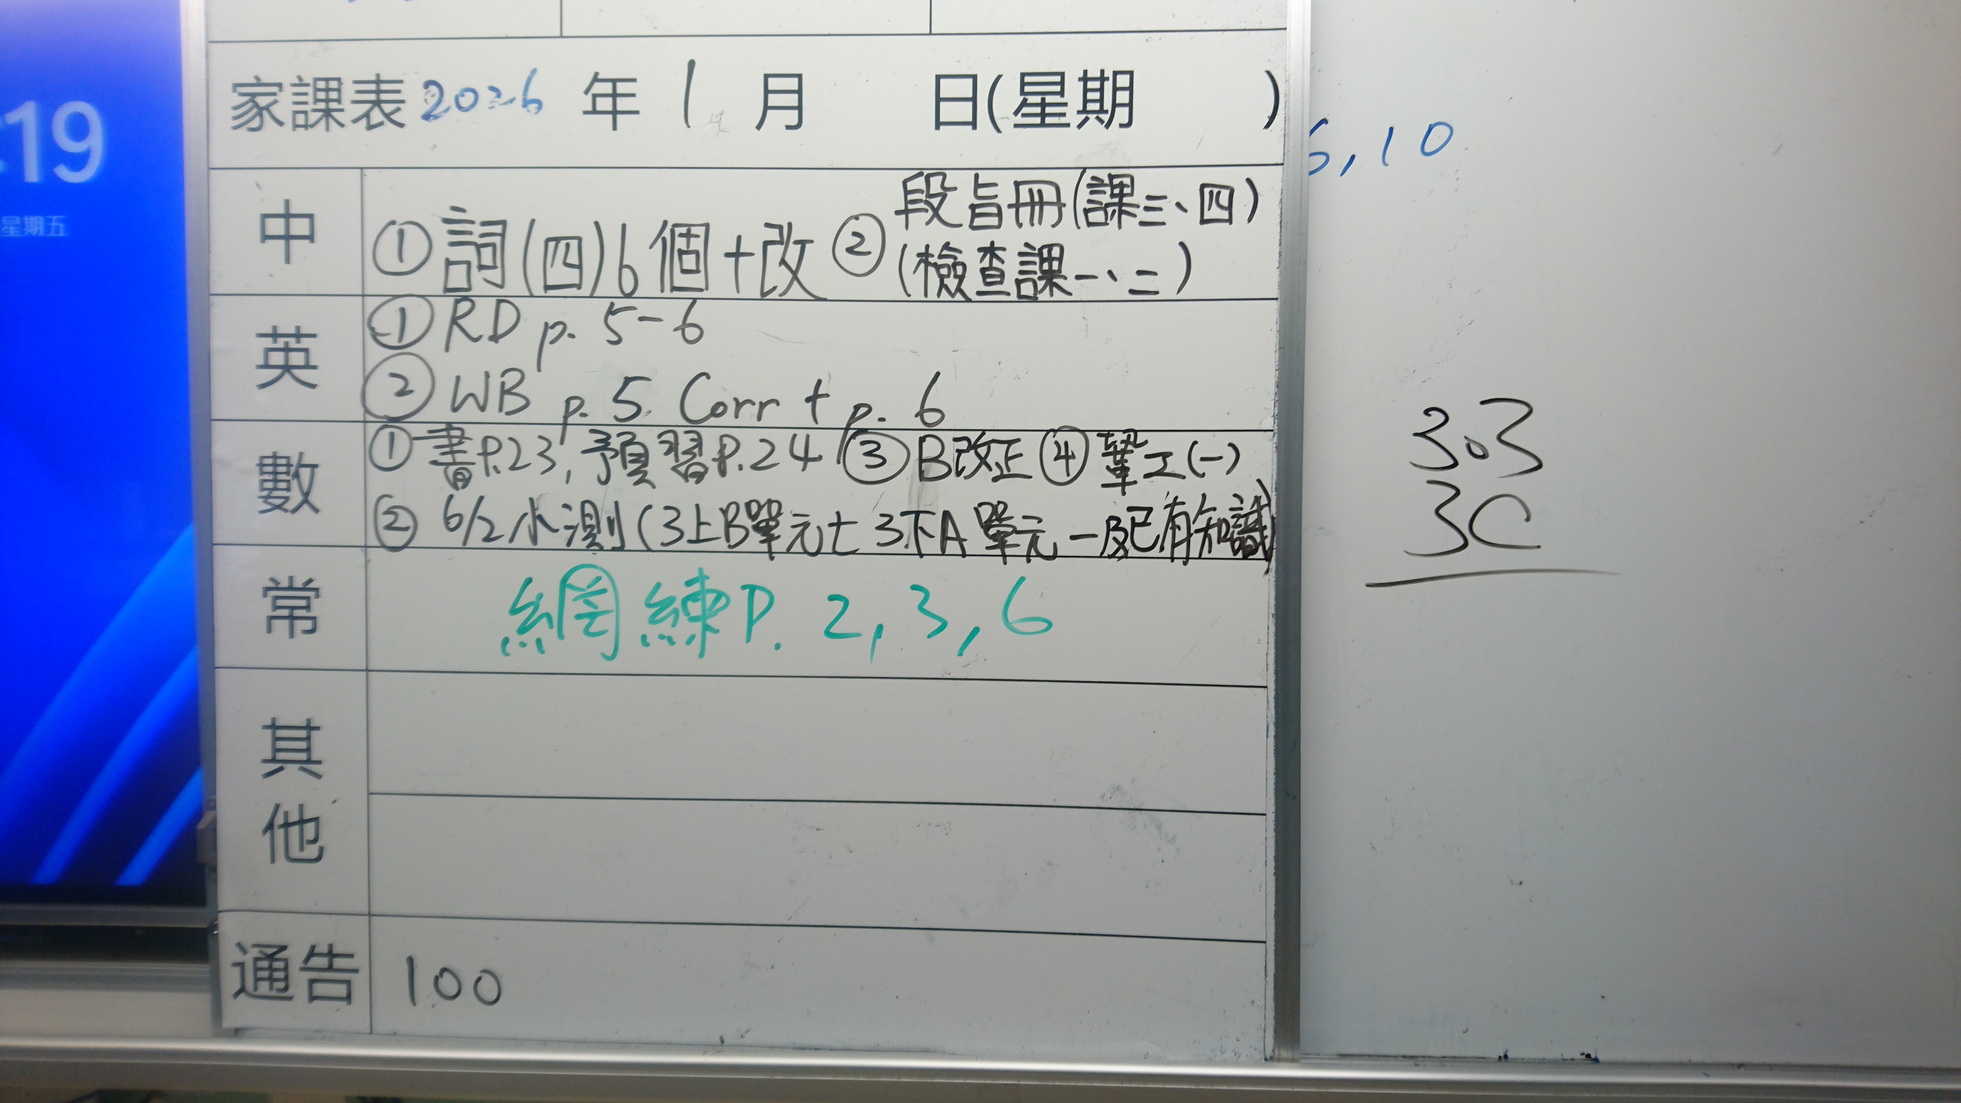 :19
星期五
家課表 2026 年 1 月 日(星期 )
中
① 詞(四)6個+改 ② 段旨冊(課三、四)
(檢查課一、二)
英
① RD p. 5-6
② WB p. 5 Corr + p. 6
數
① 書P.23, 預習P.24 ③ B改正 ④ 鞏工(一)
② 6/2 小測(3上B單元七 3下A單元一及已有知識)
常
網練P. 2, 3, 6
其他
通告
100
, 10
3.3
3C